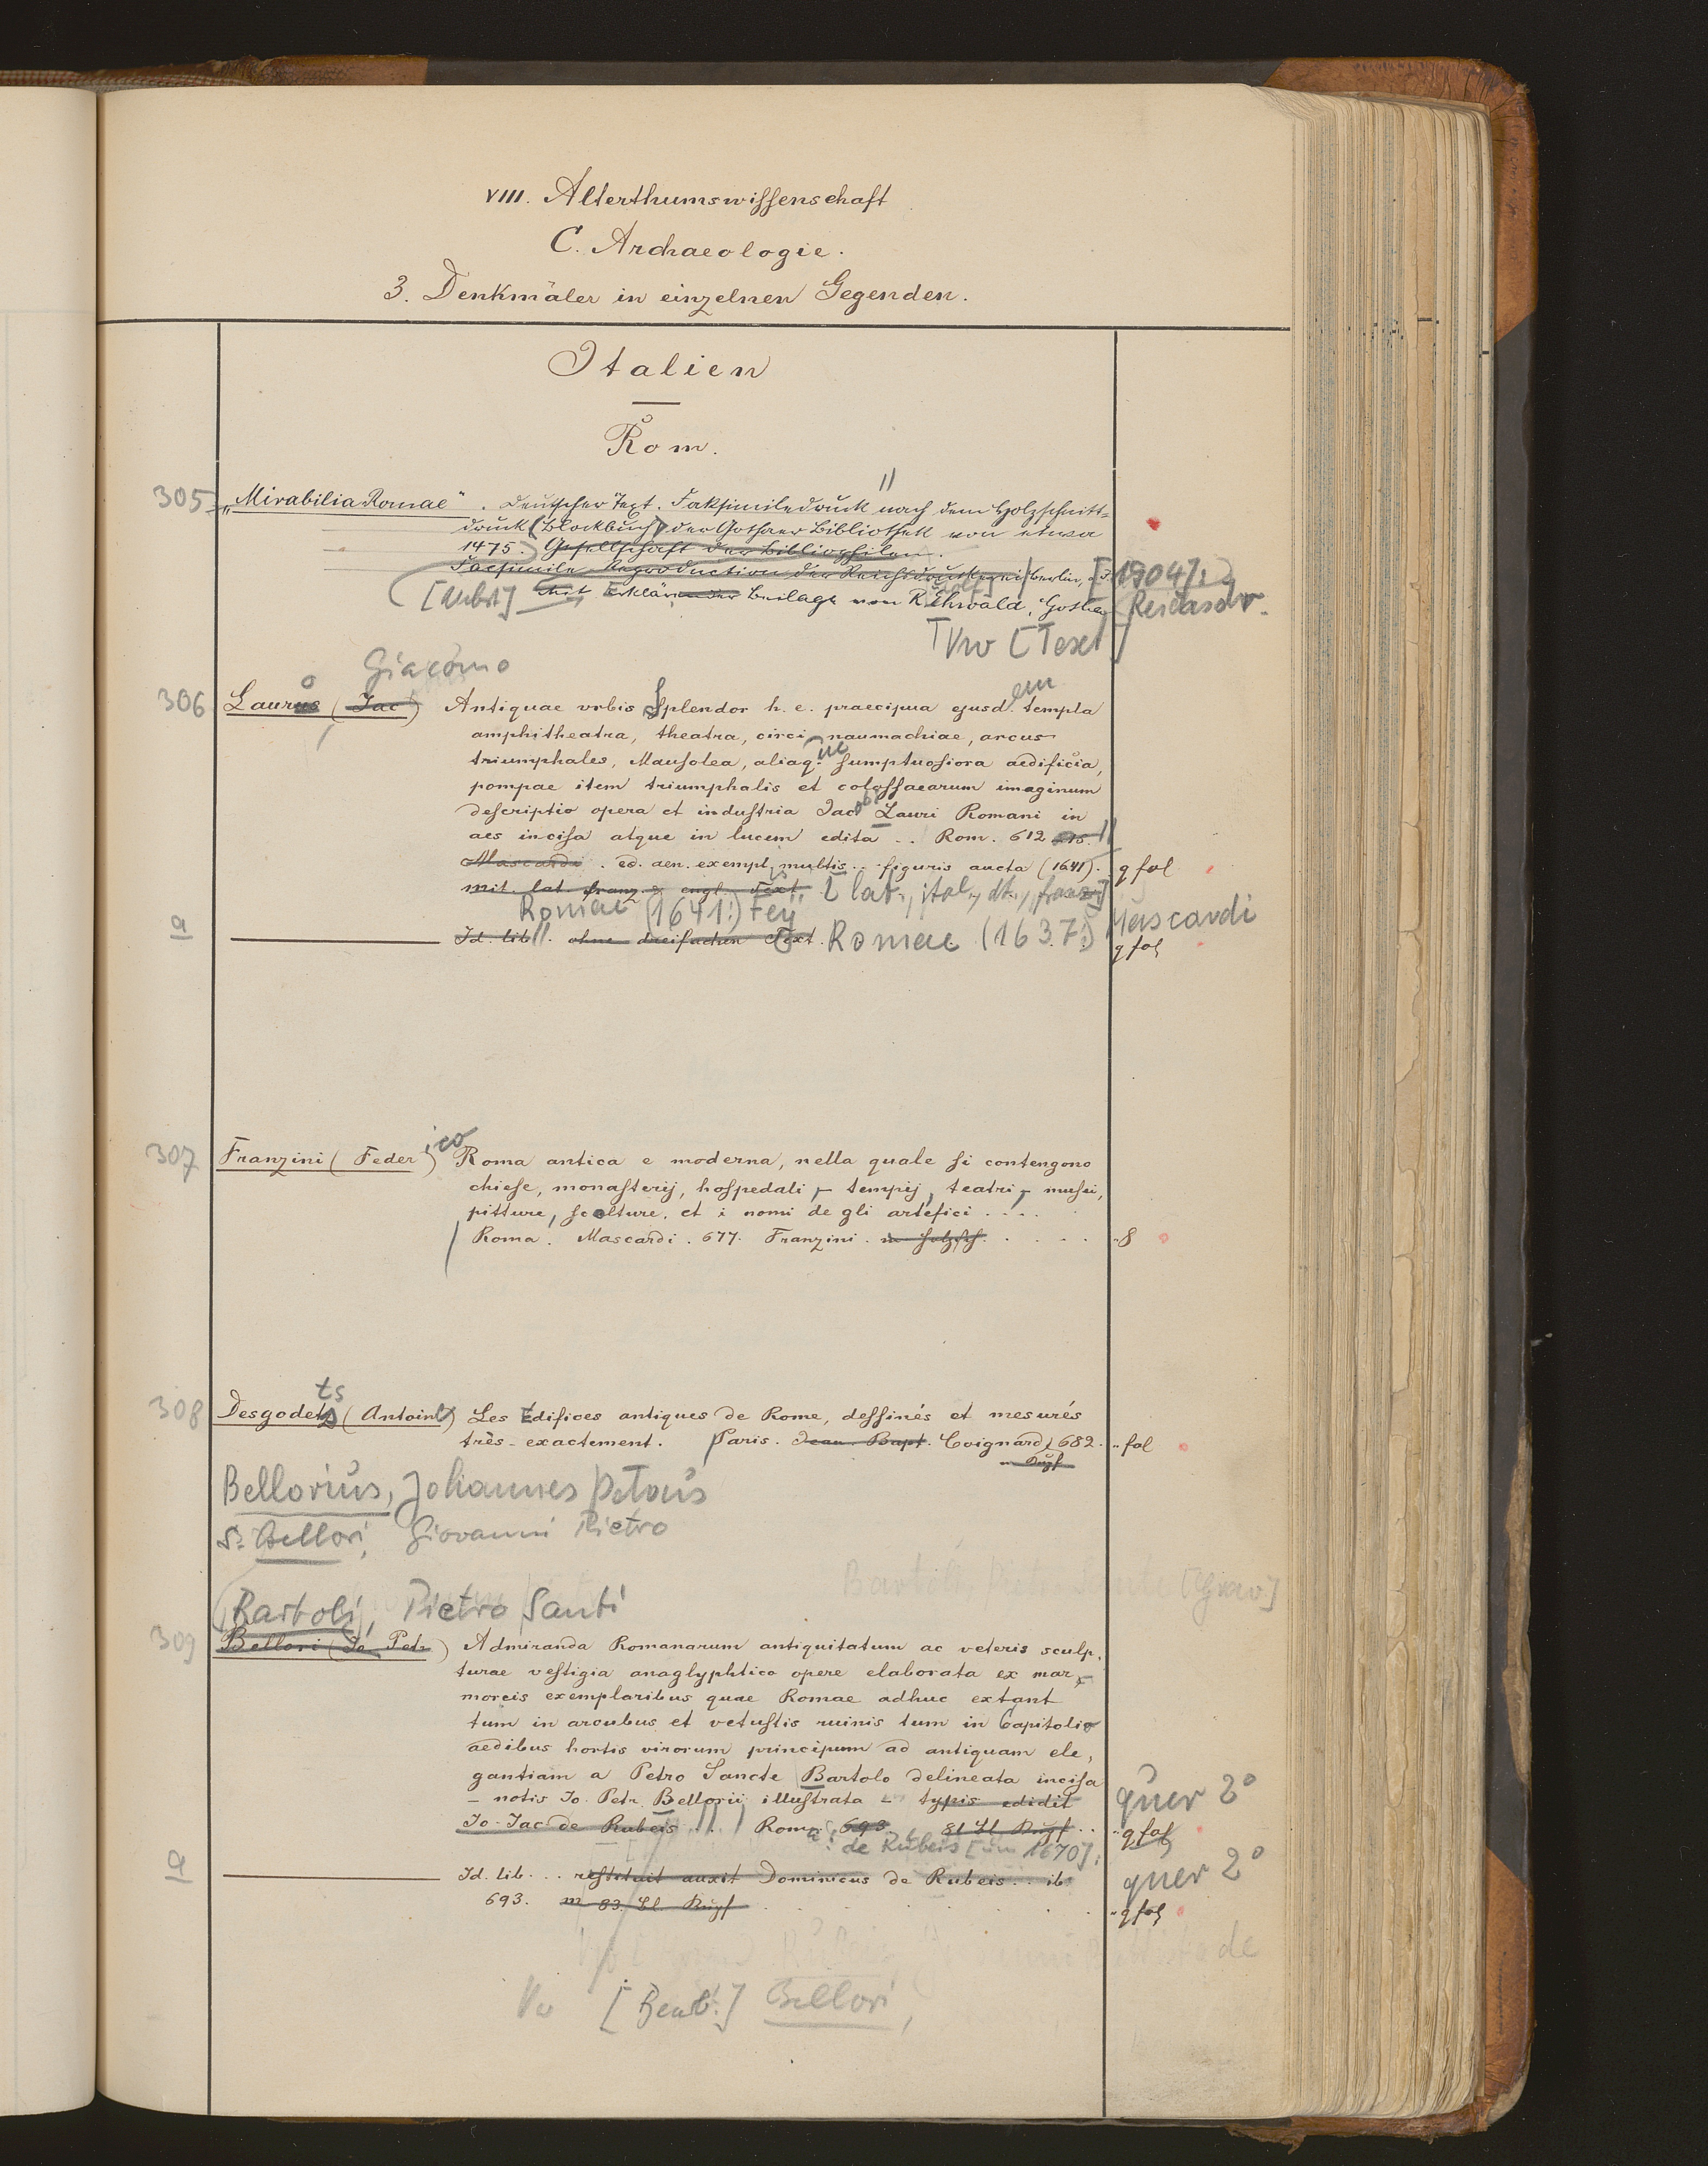 VIII. Alterthumswissenschaft
C. Archaeologie.
3. Denkmäler in einzelnen Gegenden.
Italien
Rom.
305 „Mirabilia Romae“. Deutscher Text. Faksimiledruck nach dem Holzschnitt-
druck (Blockbuch) der Gothaer Bibliothek von etwa
1475. Gesellschaft der Bibliophilen.
Facsimile Reproduction der Reichsdruckerei Berlin, [1904].
[Nebst] Mit Erklärender Beilage von R. Ehwald, Gotha
Vw [Text]
Giacomo
306 Laurus o (Jac) Antiquae urbis Splendor h. e. praecipua ejusd. em templa
amphitheatra, theatra, circi, naumachiae, arcus
triumphales, Mausolea, aliaq. ue sumptuosiora aedificia,
pompae item triumphalis et colossaearum imaginum
descriptio opera et industria Jac obi Lauri Romani in
aes incisa atque in lucem edita .. Rom. 612
Mascardi. ed. aen. exempl. multis .. figuris aucta (1641). q fol
mit lat franz. & engl. Text [lat., ital., dt., franz]
Romae (1641:) Fey
a Id. lib. ohne dreifachen Text. Romae (1637:) Mascardi
q fol
307 Franzini (Feder ico) Roma antica e moderna, nella quale si contengono
chiese, monasterij, hospedali, tempij, teatri, musei,
pitture, scolture, et i nomi de gli artefici ....
Roma. Mascardi. 677. Franzini. m Holzsch. ..... 8
308 Desgodetz ts (Antoine) Les Edifices antiques de Rome, dessinés et mesurés
très-exactement. Paris. Jean Bapt. Coignard, 682. fol
m Kupf
Bellorius, Johannes Petrus
s. Bellori, Giovanni Pietro
Bartoli, Pietro Santi [Grav]
Bartoli, Pietro Santi
309 Bellori (Jo. Petr) Admiranda Romanarum antiquitatum ac veteris sculp,
turae vestigia anaglyphtico opere elaborata ex mar,
moreis exemplaribus quae Romae adhuc extant
tum in arcubus et vetustis ruinis tum in Capitolio
aedibus hortis virorum principum ad antiquam ele,
gantiam a Petro Sancte Bartolo delineata incisa
- notis Jo. Petr. Bellorii illustrata - typis edidit quer 2°
Jo-Jac de Rubeis .. Romae: 693 81 Bl Kupf .. q fol
de Rubeis [um 1670].
a Id. lib... restituit auxit Dominicus de Rubeis .. ib quer 2°
693. m 83. Bl. Kupf q fol
Vw [Bearb.] Bellori,